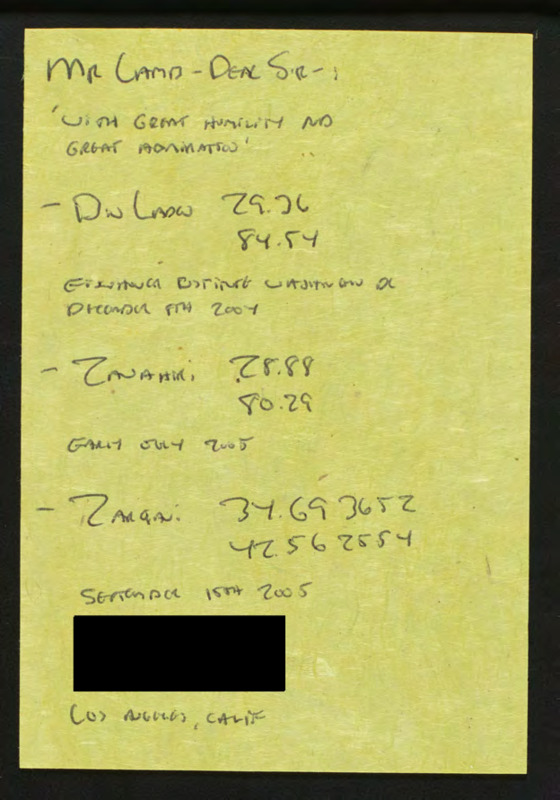 MR LAMB - DEAR SIR - ;
'WITH GREAT HUMILITY AND
GREAT ADMIRATION'
- BIN LADEN 29.36
84.54
INSTITUTE WASHINGTON DC
DECEMBER 8TH 2004
- ZAWAHIRI 28.88
80.29
EARLY JULY 2005
- ZARQAWI 34.693652
42.562554
SEPTEMBER 15TH 2005
LOS ANGELES, CALIF